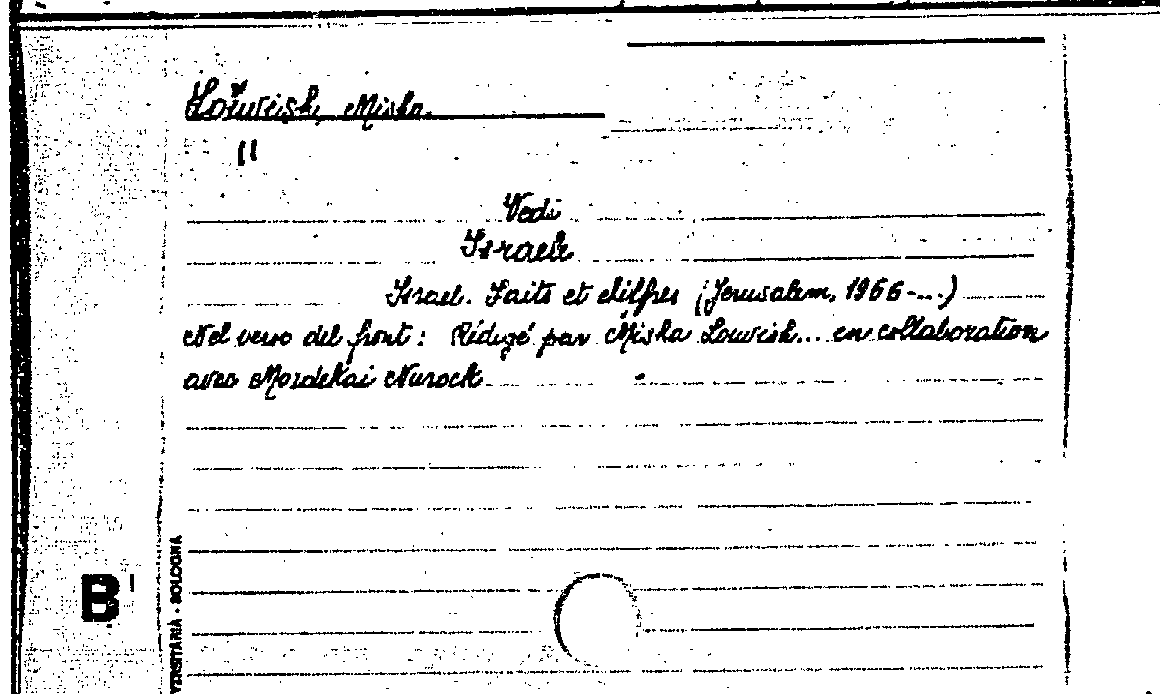 Louvish, Misha.
"
Vedi
Israele
Israel. Faits et chiffres (Jerusalem, 1966-...)
Nel verso del front: Rédigé par Misha Louvish... en collaboration
avec Mordekai Nurock
B
VERSITARIA - BOLOGNA